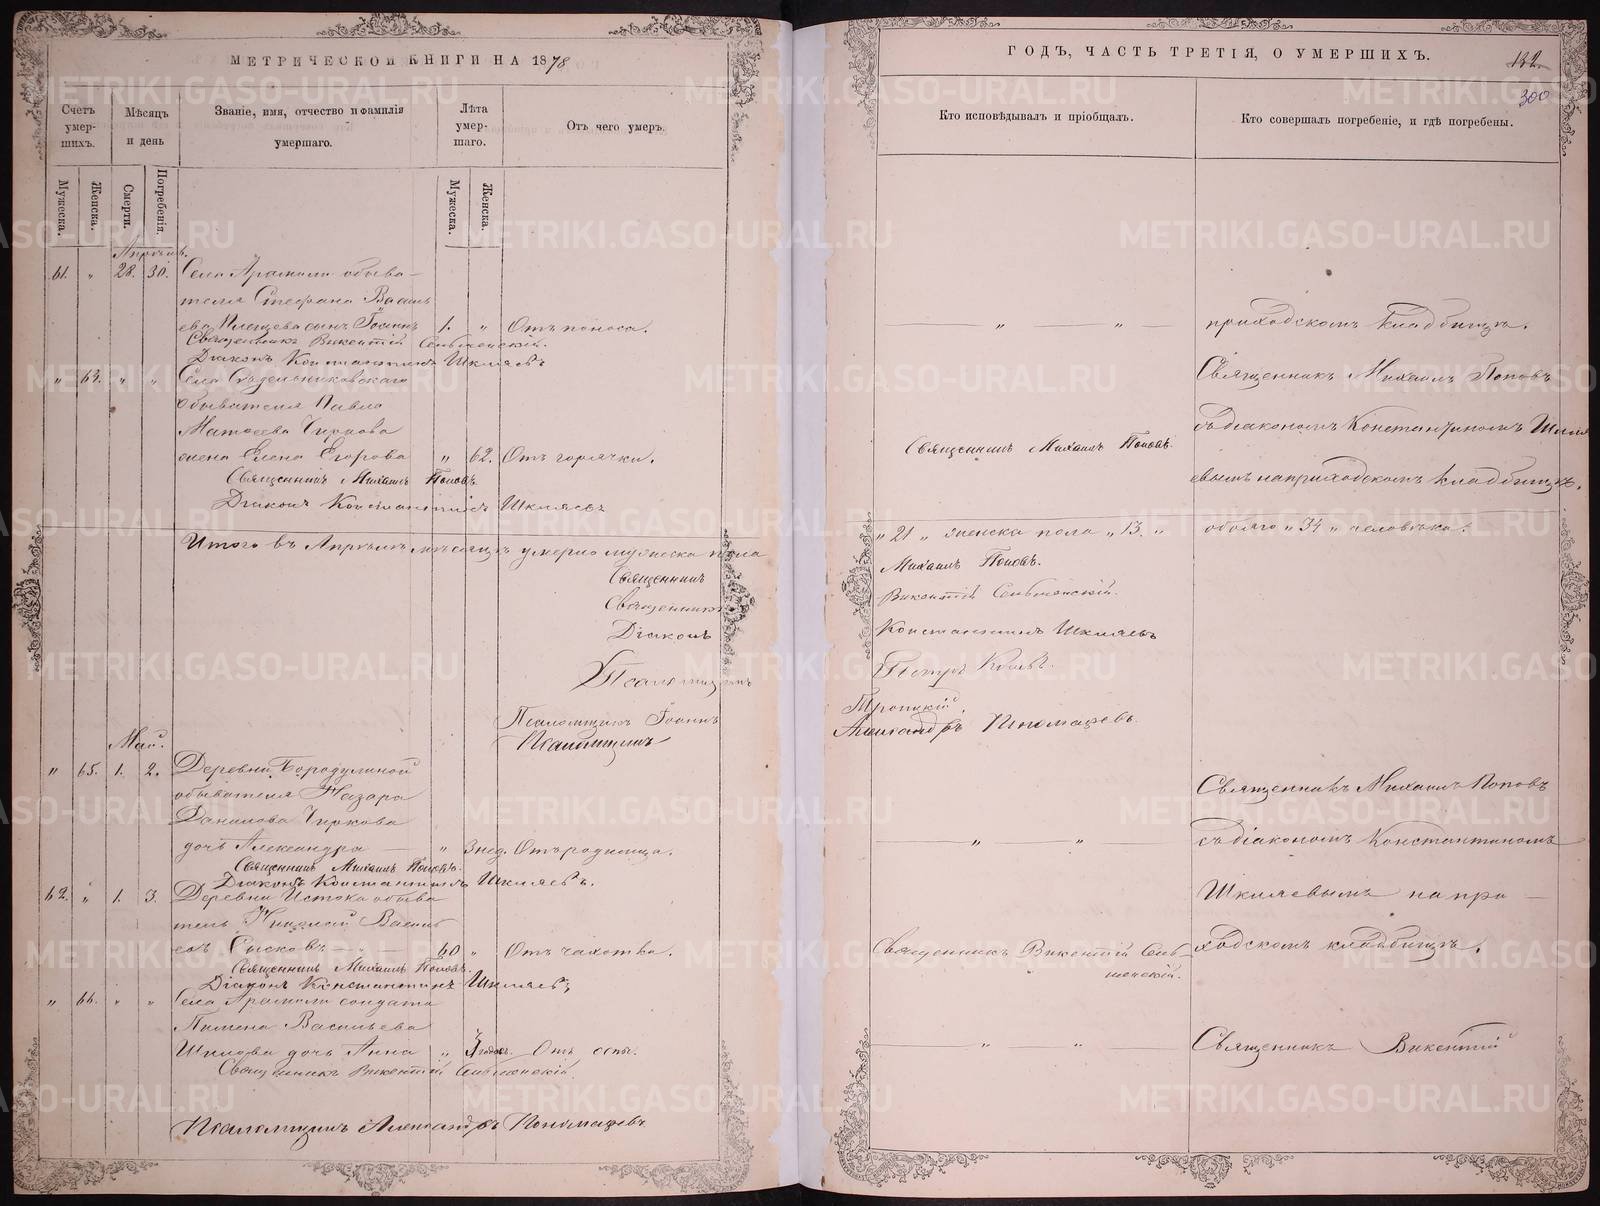 МЕТРИЧЕСКОЙ КНИГИ НА 1878
Счетъ умер-шихъ.
Мѣсяцъ и день
Званіе, имя, отчество и фамилія умершаго.
Лѣта умер-шаго.
Отъ чего умеръ.
Мужеска.
Женска.
Смерти.
Погребенія.
Мужеска.
Женска.
Апрѣль.
61. " 28. 30. Села Арамили обыва-
теля Стефана Василь
ева сынъ Іоаннъ 1. " Отъ поноса.
Священникъ Викентій
Діаконъ Константинъ Шкляевъ
" 64. " " Села
обывателя Павла
Матѳеева Чиркова
жена Елена Егорова " 62. Отъ горячки.
Священникъ Михаилъ Поповъ.
Діаконъ Константинъ Шкляевъ
Итого въ Апрѣлѣ мѣсяцѣ умерло мужеска пола
Священникъ
Священникъ
Діаконъ
Псаломщикъ
Псаломщикъ Іоаннъ
Псаломщикъ
Май.
" 65. 1. 2. Деревни Бородулиной
обывателя Назара
Данилова Чиркова
дочь Александра " 3 нед. Отъ родимца.
Священникъ Михаилъ Поповъ.
Діаконъ Константинъ Шкляевъ.
62. " 1. 3. Деревни Истока обыва
тель Николай Василь
евъ Сысковъ 60 " Отъ чахотки.
Священникъ Михаилъ Поповъ.
Діаконъ Константинъ Шкляевъ,
" 66. " " Села Арамили солдата
Пимена Васильева
Шилова дочь Анна " годовъ. Отъ оспы.
Священникъ Викентій
Псаломщикъ Александръ Пономаревъ
ГОДЪ, ЧАСТЬ ТРЕТІЯ, О УМЕРШИХЪ.
132
300
Кто исповѣдывалъ и пріобщалъ.
Кто совершалъ погребеніе, и гдѣ погребены.
" "
приходскомъ кладбищѣ.
Священникъ Михаилъ Поповъ
Священникъ Михаилъ Поповъ.
съ діакономъ Константиномъ Шкля
евымъ на приходскомъ кладбищѣ.
" 21 " женска пола " 13. " обоего " 34 " человѣка.
Михаилъ Поповъ.
Викентій
Константинъ Шкляевъ
Петръ
Троицкій.
Александръ Пономаревъ.
" "
Священникъ Михаилъ Поповъ
съ діакономъ Константиномъ
Шкляевымъ на при
Священникъ Викентій
ходскомъ кладбищѣ.
" "
Священникъ Викентій
METRIKI.GASO-URAL.RU